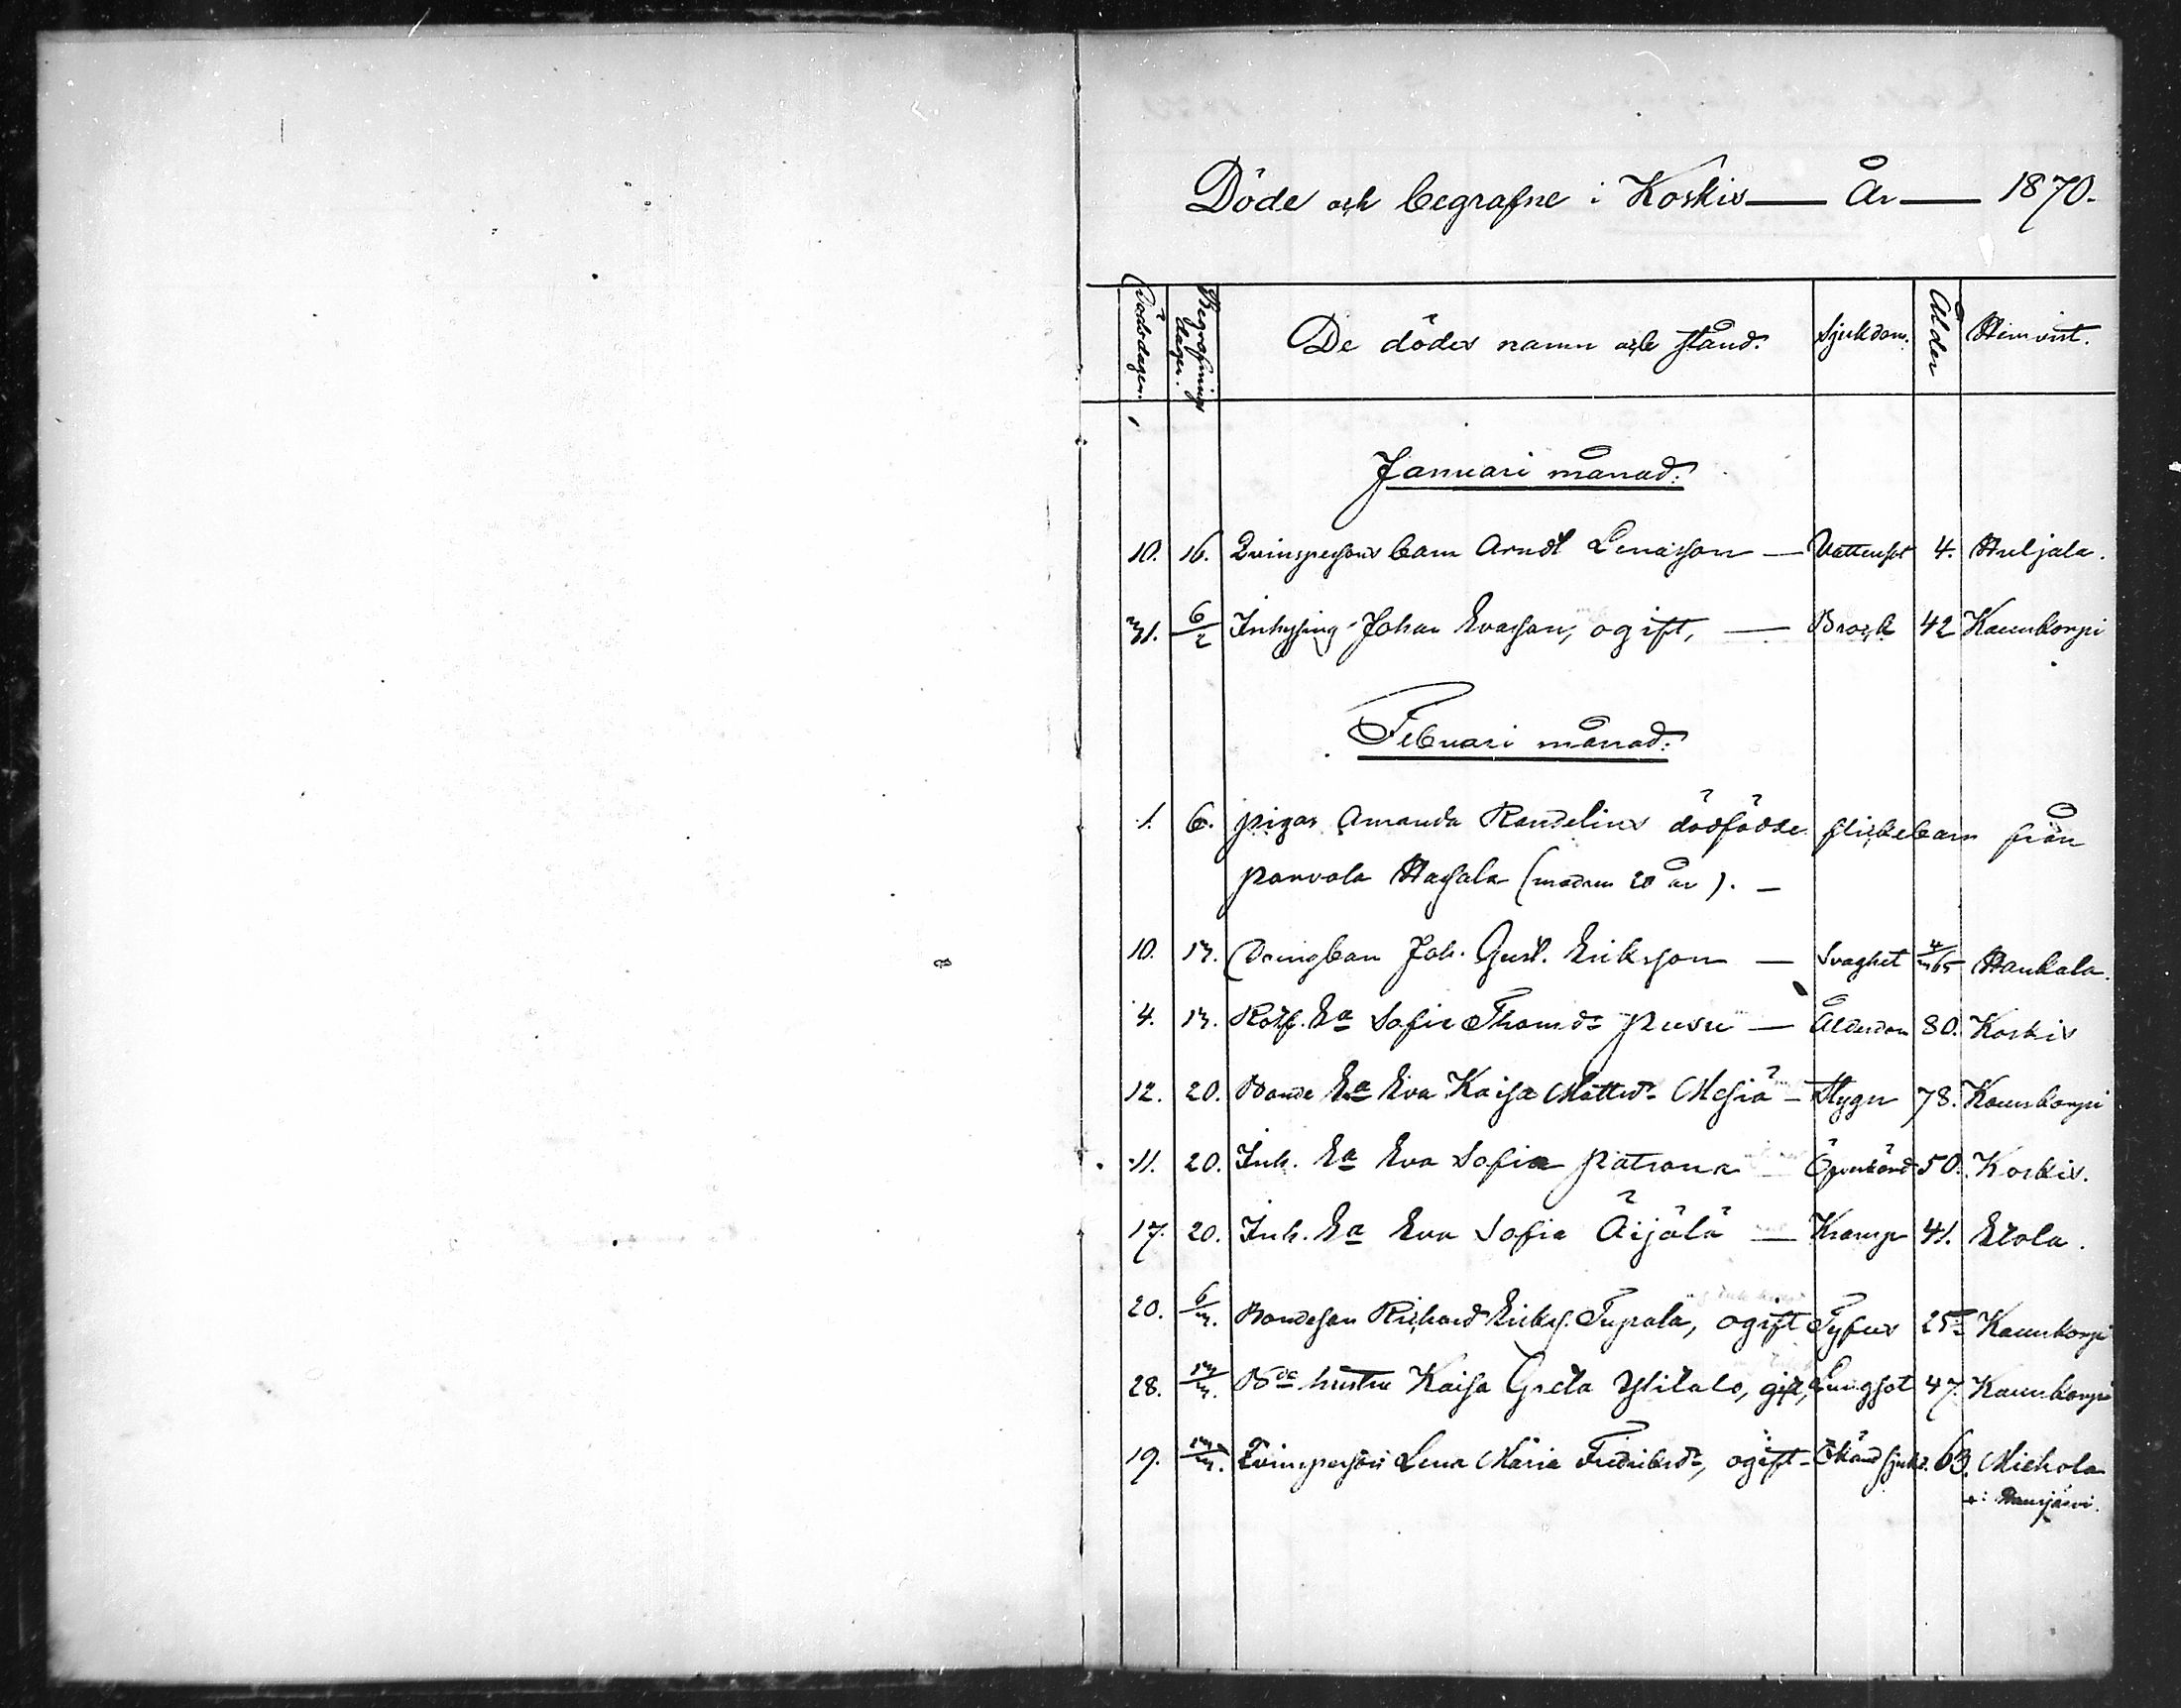 Döde och begrafne i Koskis — År — 1870.
Dödsdagen. Begrafnings dagen. De dödes namn och stånd. Sjukdom. Ålder Hemvist.
Januari månad.
10. 16. Qvinspersons barn Arndt Lenasson — Vattusot 4. Huljala.
31. 6/2 Inhysing Johan Evasson, ogift, — Brock 42 Kauukorpi
Februari månad.
1. 6. pigas Amanda Randelins dödfödde flickebarn från
Porvola Hasala (modren 20 år). —
10. 13. Drängbarn Joh. Gust. Eriksson — Svaghet Haukala.
4. 13. Rotf. Ea Sofia Thomsdr Pusu — Ålderdom 80. Koskis
12. 20. Bonde Ea Eva Kaisa Mattsdr — Stygn 78. Kauukorpi
11. 20. Inh. Ea Eva Sofia Patrona — 50. Koskis.
17. 20. Inh. Ea Eva Sofia Äijälä — Kramp 41. Etola.
20. 6/3. Bondeson Richard Eriks. Tupala, ogift Tyfus 25 Kauukorpi
28. 13/3. Bde hustru Kaisa Greta Ylitalo, gift, Lungsot 47 Kauukorpi
19. 13/3. Qvinsperson Lena Maria Fredriksdr, ogift — Okänd sjukd. 63. Michola